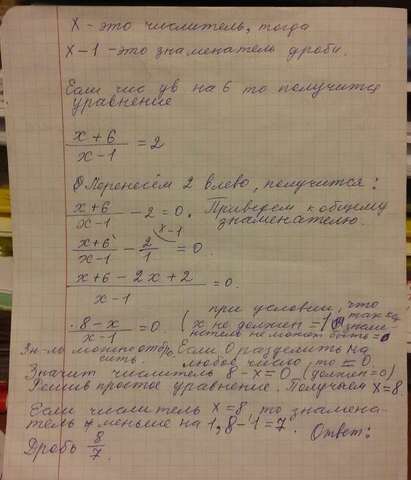 x - это числитель, тогда
x - 1 - это знаменатель дроби.
Если чис ув на 6 то получится
уравнение
x+6 / x-1 = 2
Перенесём 2 влево, получится:
x+6 / x-1 - 2 = 0. Приведем к общему
знаменателю.
x+6 / x-1 - 2 / 1 = 0. x-1
x+6-2x+2 / x-1 = 0.
8-x / x-1 = 0. (при условии, что
x не должен = 1, так как знаме-
натель не может быть = 0
Зн-ль можно отбро-
сить. Если 0 разделить на
любое число, то = 0.
Значит числитель 8-x=0. (должен=0)
Решив простое уравнение. Получаем x=8.
Если числитель x=8, то знамена-
тель меньше на 1, 8-1=7. Ответ:
Дробь 8/7.